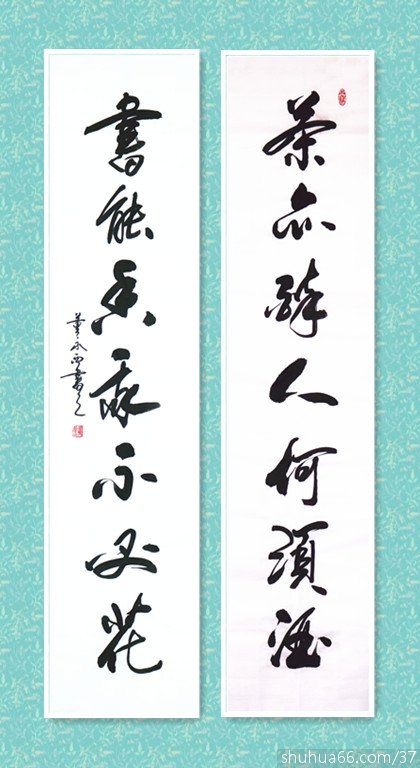 茶亦醉人何須酒
書能香我不必花
董永西書之
shuhua66.com/37